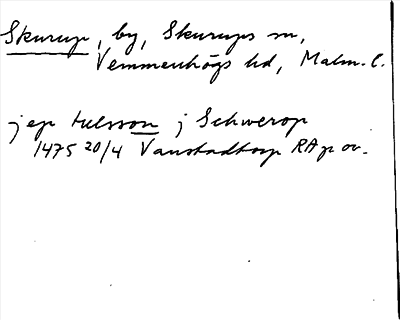 Skurup, by, Skurups sn,
Vemmenhögs hd, Malm. l.
jep tulsson j Schwerop
1475 20/4 Vanstadtorp RA p or.